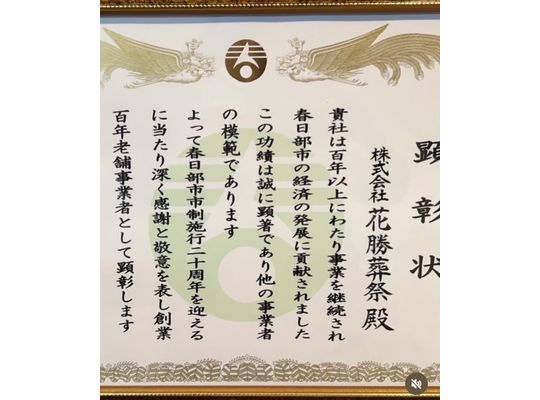 顕彰状
株式会社 花勝葬祭 殿
貴社は百年以上にわたり事業を継続され
春日部市の経済の発展に貢献されました
この功績は誠に顕著であり他の事業者
の模範であります
よって春日部市市制施行二十周年を迎える
に当たり深く感謝と敬意を表し創業
百年老舗事業者として顕彰します